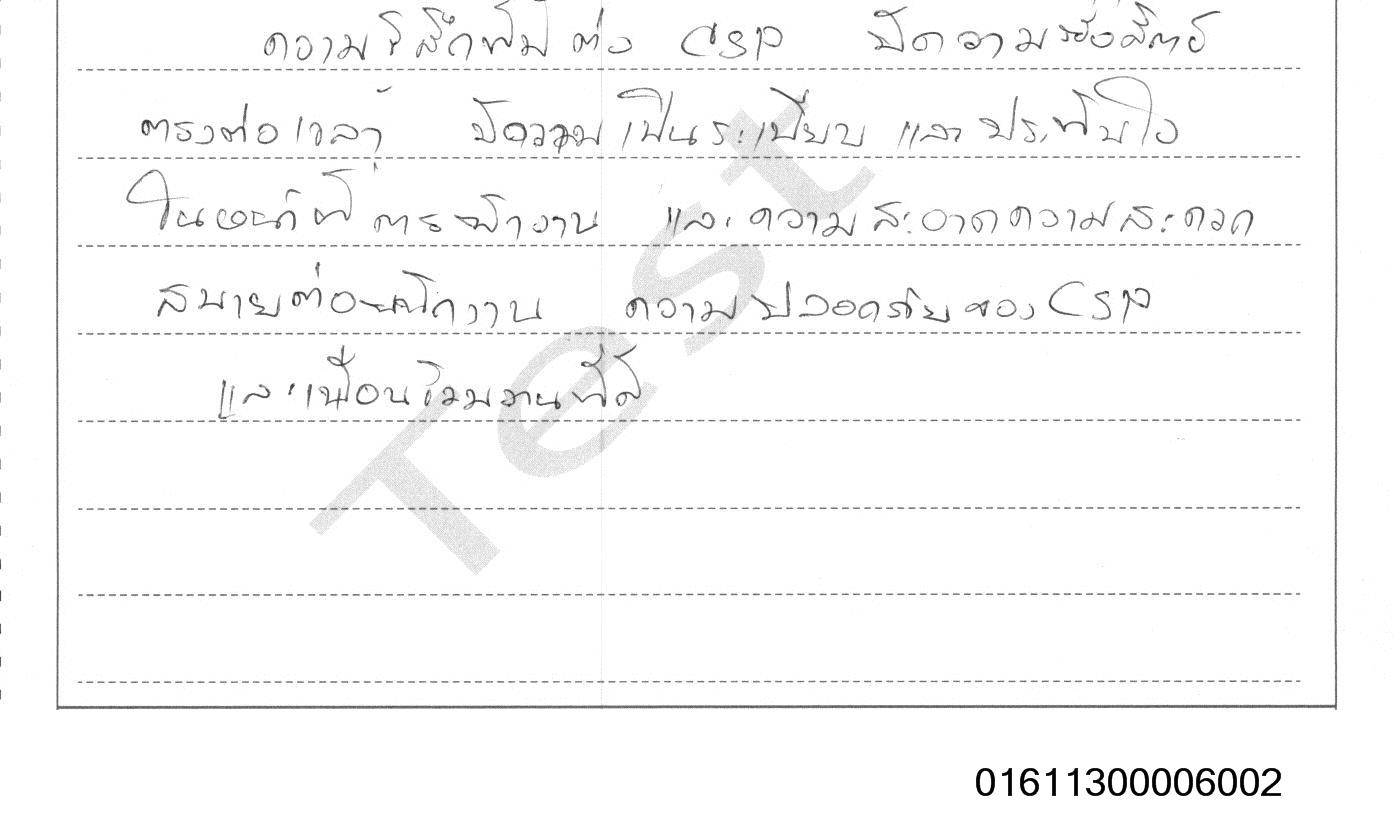 ความรู้สึกที่มีต่อ CSP มีความซื่อสัตย์
ตรงต่อเวลา มีความเป็นระเบียบ และประทับใจ
ในหน้าที่การทำงาน และความสะอาดความสะดวก
สบายต่อพนักงาน ความปลอดภัยของ CSP
และเพื่อนร่วมงานที่ดี
Test
01611300006002